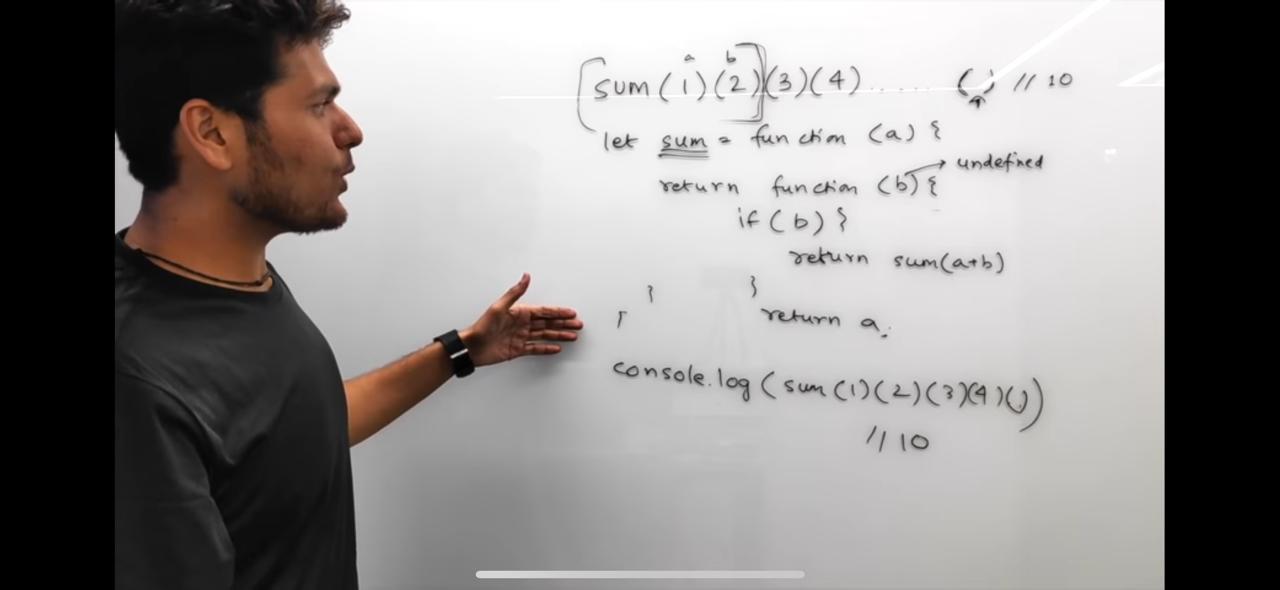 a b
sum(1)(2)(3)(4)...... () // 10
let sum = function (a) {
return function (b) { → undefined
if (b) {
return sum(a+b)
}
} return a;
console.log(sum(1)(2)(3)(4)())
// 10